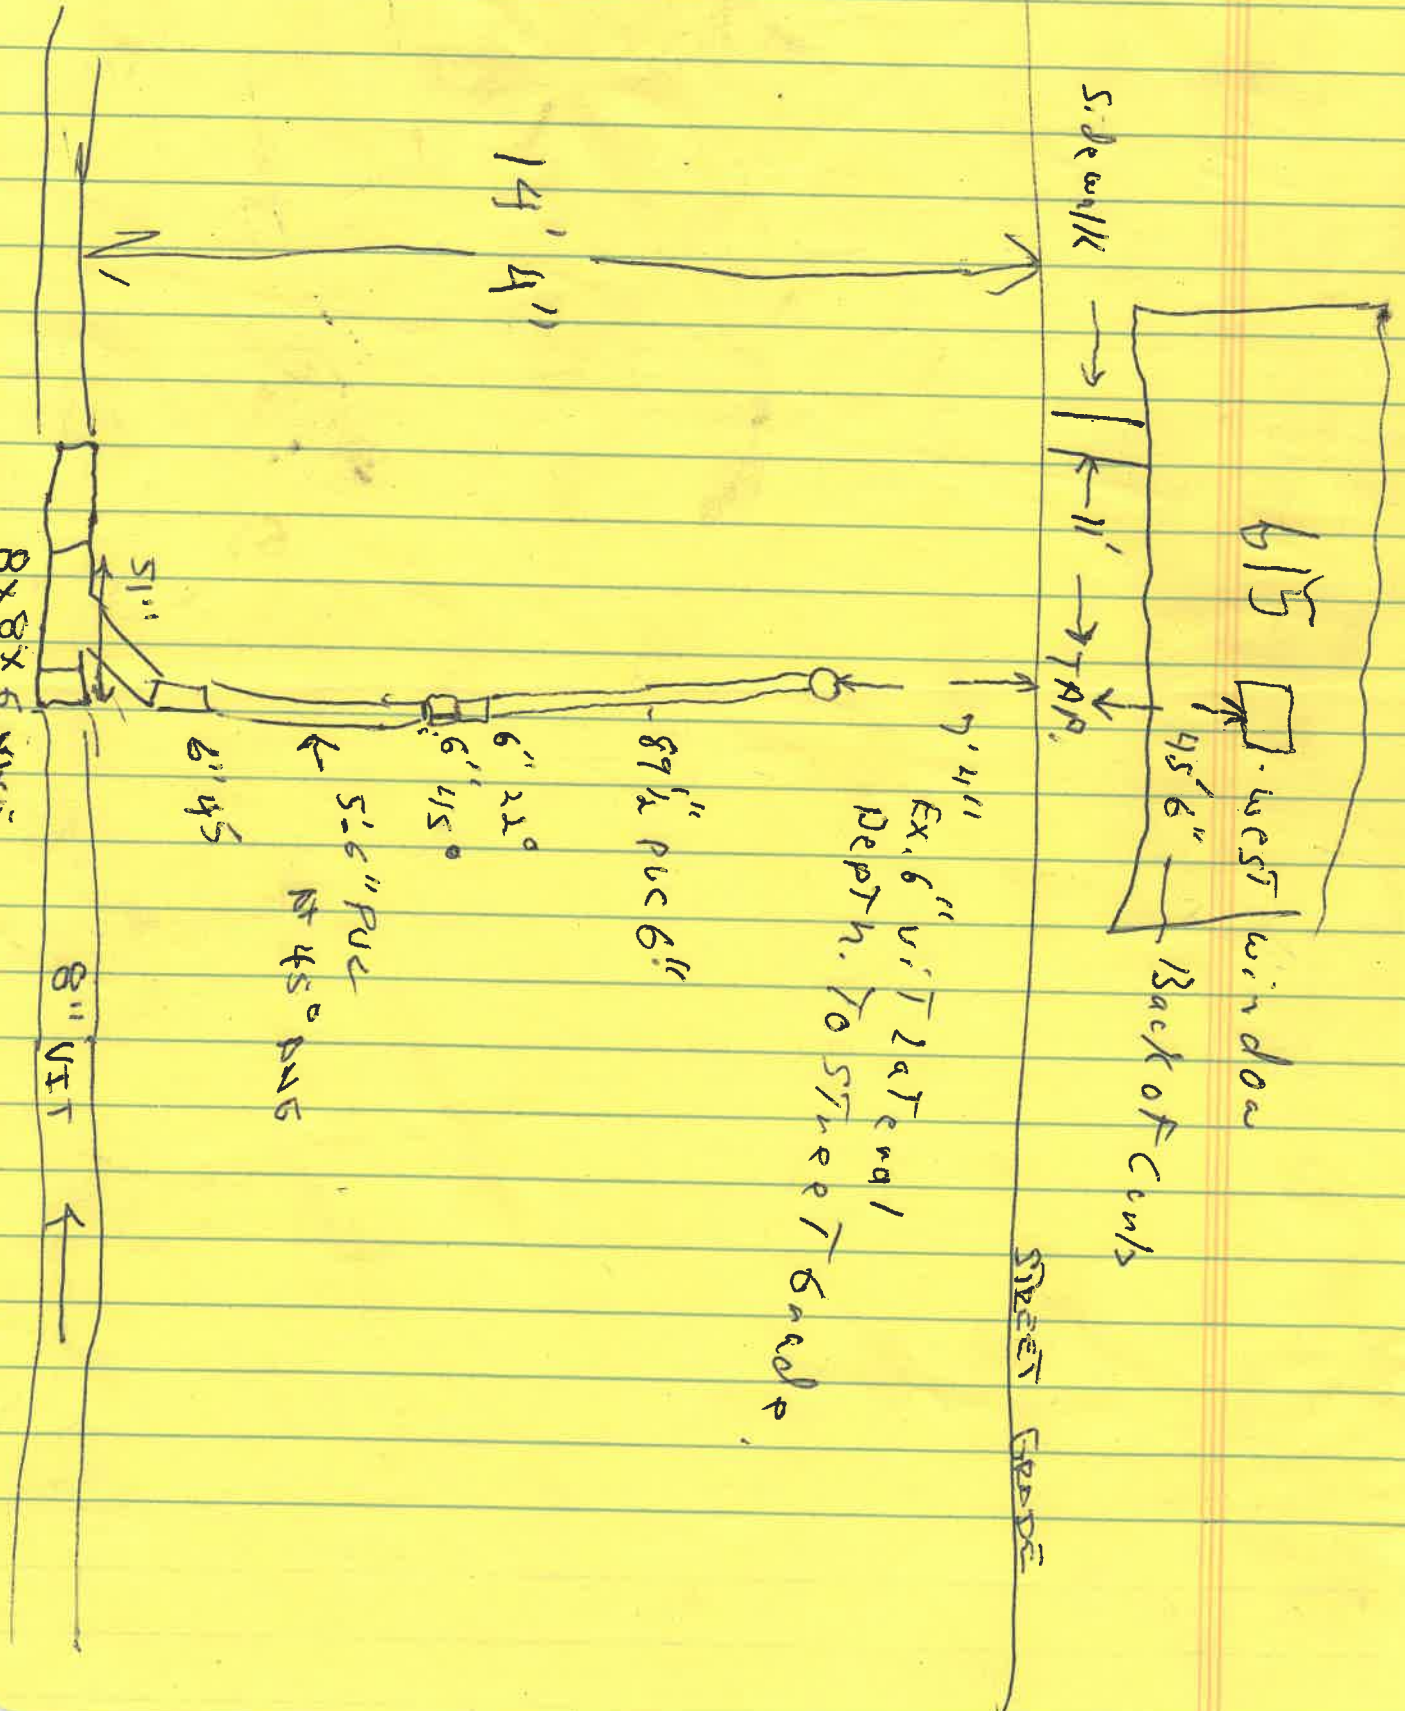 615
West window
45'6" Back of Curb
Sidewalk
11'
TAP.
STREET GRADE
7'4"
Ex. 6" viT LaTeral
DepTh. To STreeT Grade.
14' 4"
89 1/2" PVC 6"
6" 22°
6" 45°
5'-6" PVC
AT 45° ANG
6" 45
51"
8" VIT
8 x 8 x 6